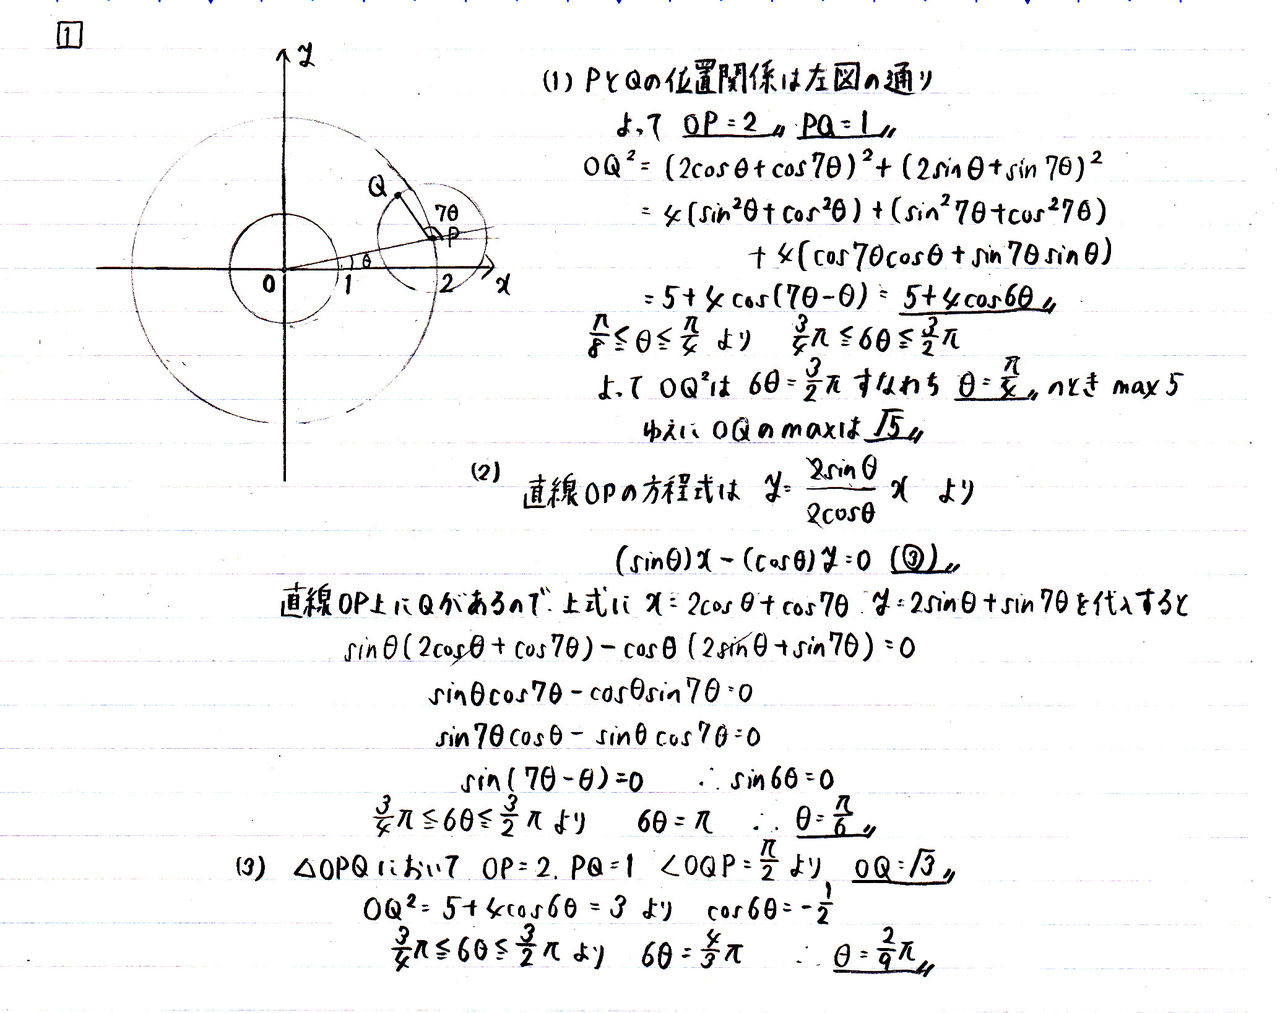 1
y
Q
7θ
P
θ
O 1 2 x
(1) PとQの位置関係は左図の通り
よって OP=2 〃 PQ=1 〃
OQ² = (2cosθ+cos7θ)²+(2sinθ+sin7θ)²
= 4(sin²θ+cos²θ)+(sin²7θ+cos²7θ)
+4(cos7θcosθ+sin7θsinθ)
= 5+4cos(7θ-θ) = 5+4cos6θ 〃
π/8 ≦ θ ≦ π/4 より 3/4π ≦ 6θ ≦ 3/2π
よって OQ²は 6θ=3/2π すなわち θ=π/4 〃 のとき max 5
ゆえに OQのmaxは √5 〃
(2) 直線OPの方程式は y=2sinθ/2cosθ x より
(sinθ)x-(cosθ)y=0 (③) 〃
直線OP上にQがあるので、上式に x=2cosθ+cos7θ. y=2sinθ+sin7θを代入すると
sinθ(2cosθ+cos7θ)-cosθ(2sinθ+sin7θ)=0
sinθcos7θ-cosθsin7θ=0
sin7θcosθ-sinθcos7θ=0
sin(7θ-θ)=0 ∴ sin6θ=0
3/4π ≦ 6θ ≦ 3/2π より 6θ=π ∴ θ=π/6 〃
(3) △OPQにおいて OP=2. PQ=1 ∠OQP=π/2 より OQ=√3 〃
OQ²=5+4cos6θ=3 より cos6θ=-1/2
3/4π ≦ 6θ ≦ 3/2π より 6θ=4/3π ∴ θ=2/9π 〃